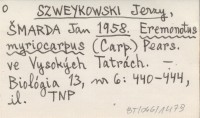 o SZWEYKOWSKI Jerzy,
ŠMARDA Jan 1958. Eremonotus
myriocarpus (Carp.) Pears.
ve Vysokých Tatrách. –
Biológia 13, nr 6: 440–444,
il. TNP